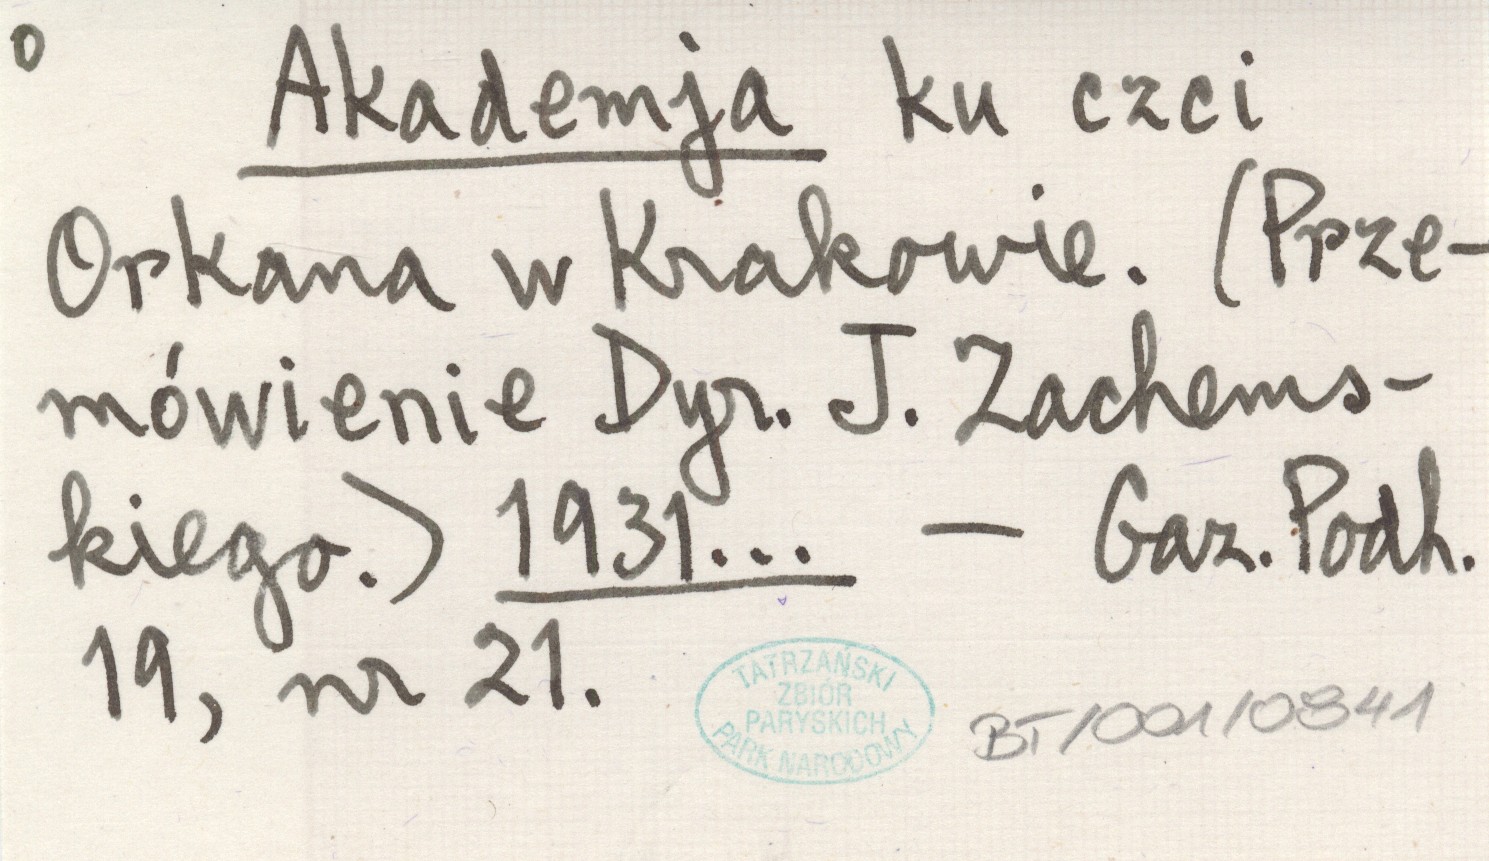 o
Akademja ku czci
Orkana w Krakowie. (Prze-
mówienie Dyr. J. Zachems-
kiego.) 1931... — Gaz. Podh.
19, nr 21.
TATRZAŃSKI
ZBIÓR
PARYSKICH
PARK NARODOWY
BT/001/0841